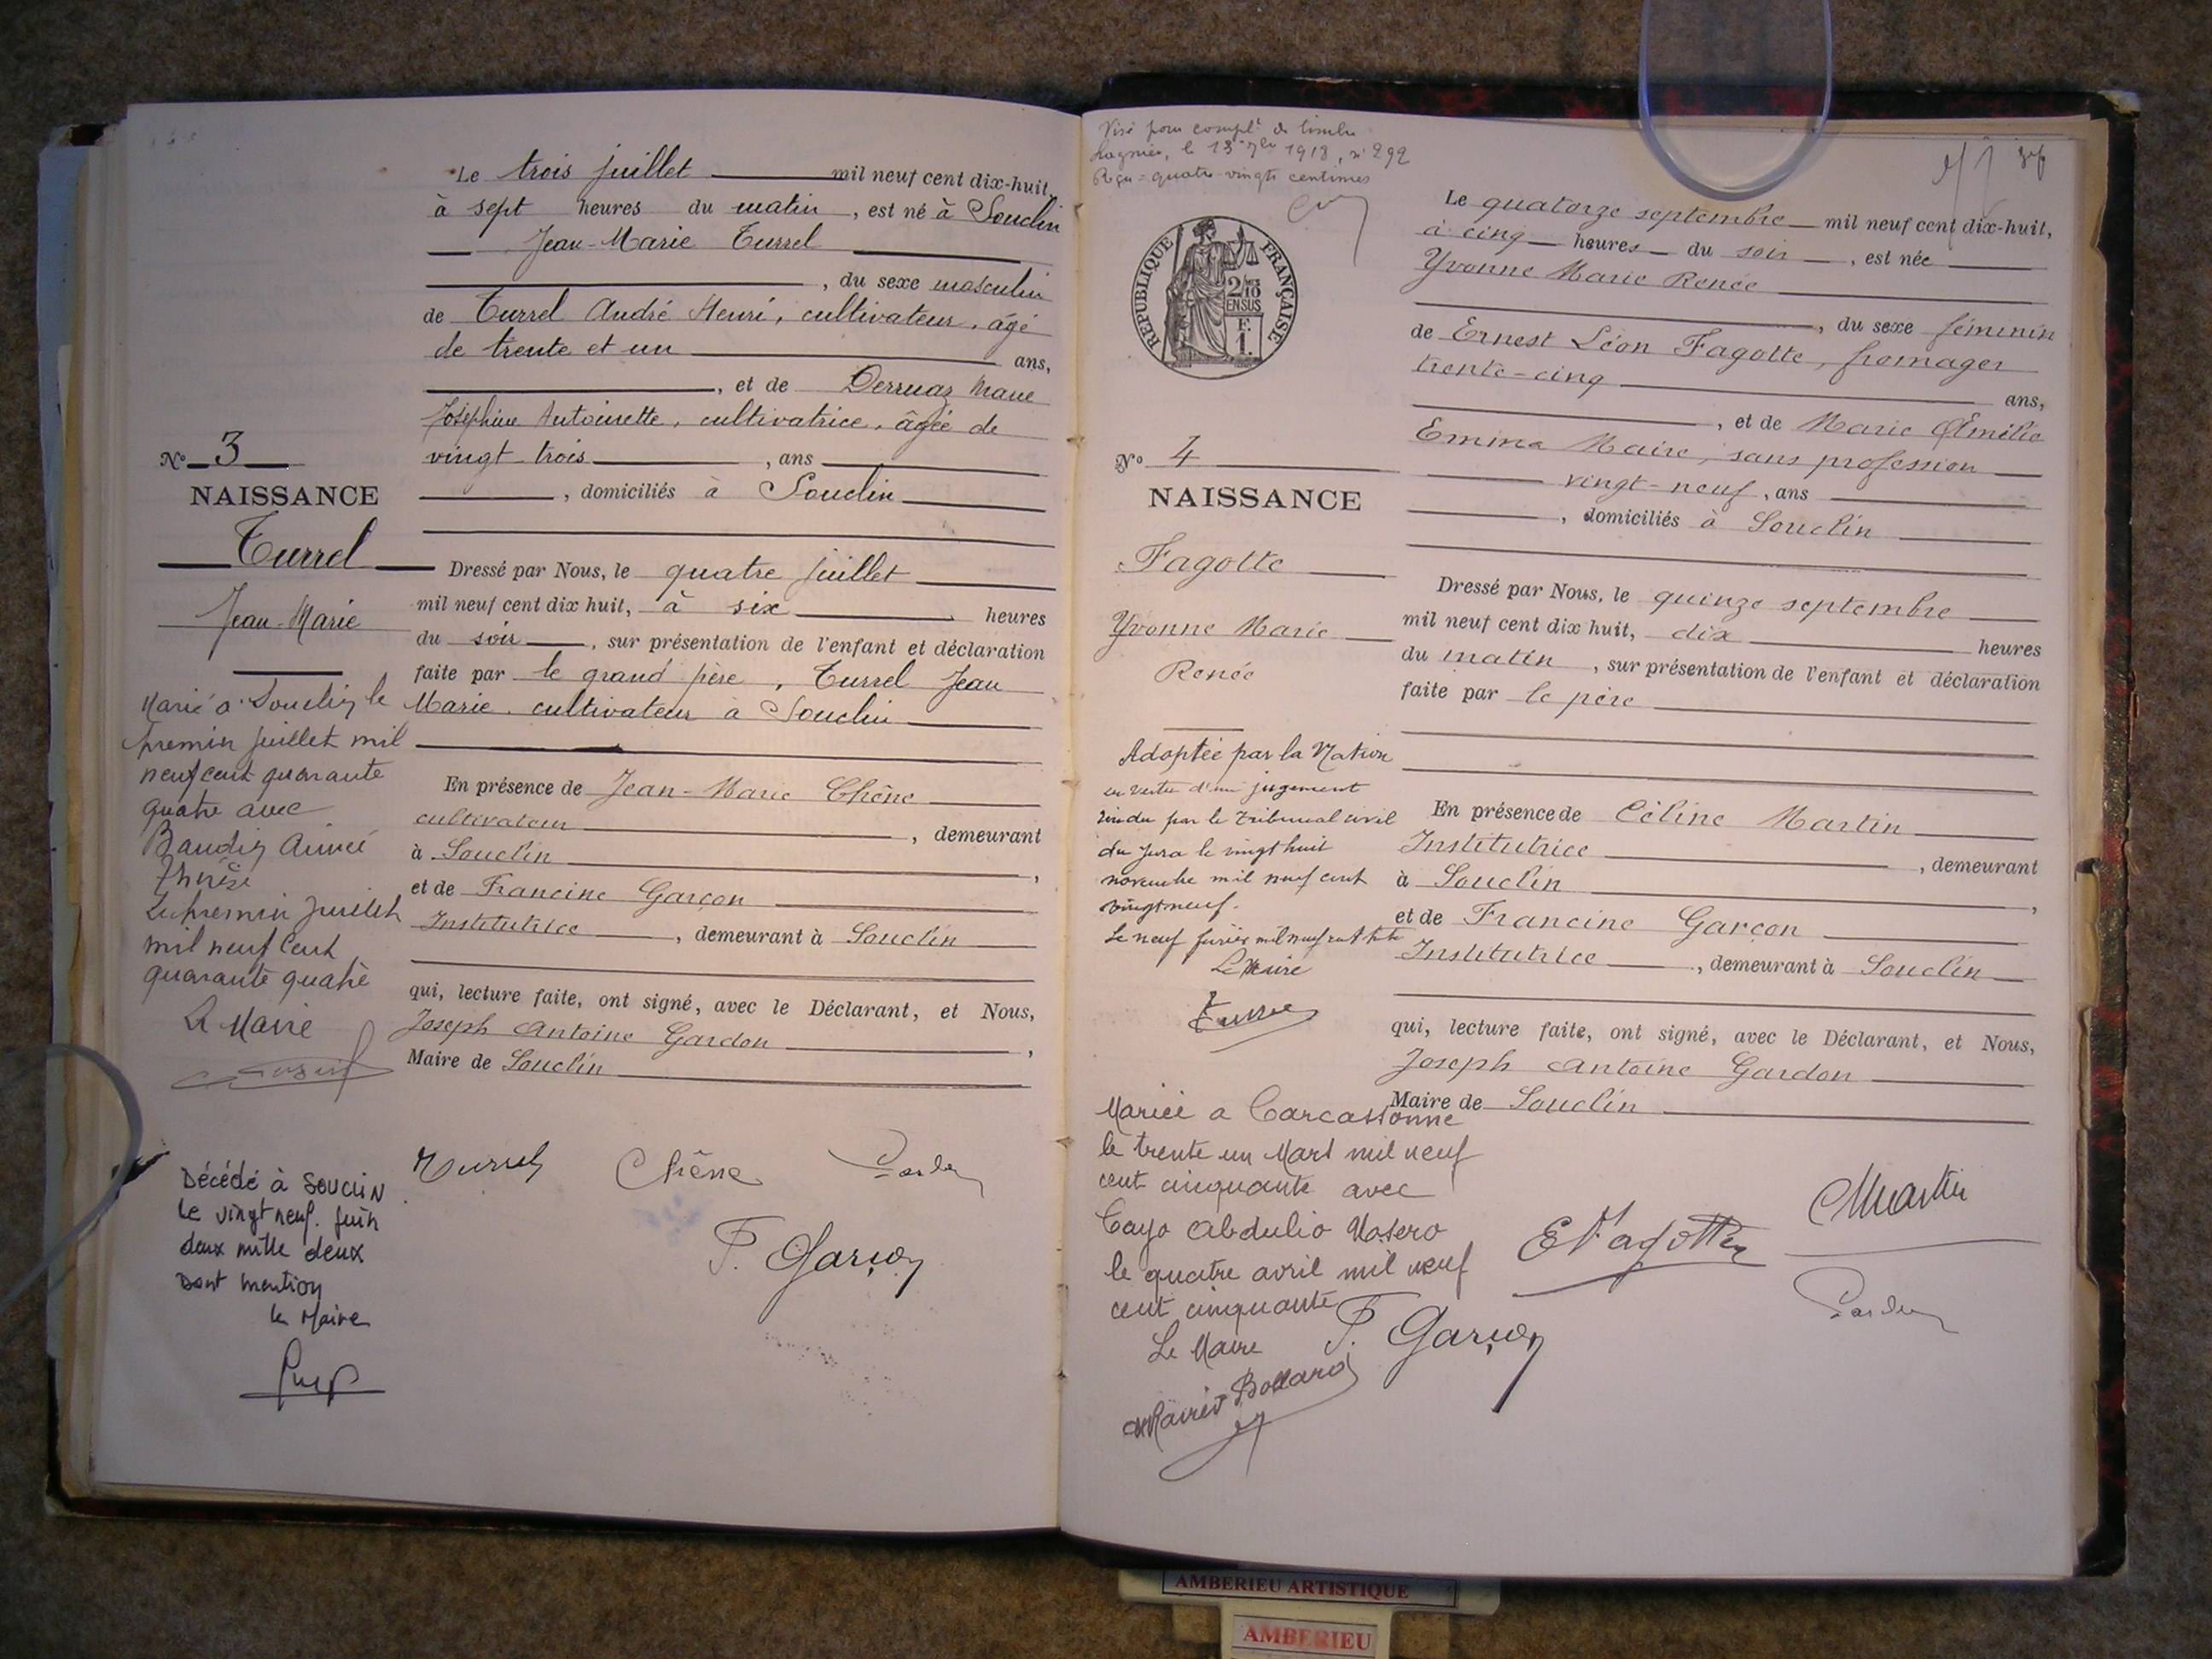 Le trois juillet mil neuf cent dix-huit,
à sept heures du matin, est né à Souclin
Jean-Marie Turrel
, du sexe masculin
de Turrel André Henri, cultivateur, âgé
de trente et un ans,
, et de Derruaz Marie
Joséphine Antoinette, cultivatrice, âgée de
vingt trois , ans
, domiciliés à Souclin
Dressé par Nous, le quatre juillet
mil neuf cent dix huit, à six heures
du soir, sur présentation de l'enfant et déclaration
faite par le grand père, Turrel Jean
Marie, cultivateur à Souclin
En présence de Jean-Marie Chêne
cultivateur , demeurant
à Souclin ,
et de Francine Garçon
Institutrice , demeurant à Souclin
qui, lecture faite, ont signé, avec le Déclarant, et Nous,
Joseph Antoine Gardon ,
Maire de Souclin
Turrel Chêne Gardon
F. Garçon
N° 3
NAISSANCE
Turrel
Jean-Marie
Marié à Souclin le
premier juillet mil
neuf cent quarante
quatre avec
Baudin Aimée
Thérèse
Le premier juillet
mil neuf cent
quarante quatre
Le Maire
Décédé à SOUCLIN
Le vingt neuf juin
deux mille deux
Dont mention
le Maire
Visé pour complt de timbre
Lagnieu, le 13 7bre 1918, n° 292
Reçu = quatre-vingts centimes
REPUBLIQUE FRANÇAISE
2/10
EN SUS
F.
1.
Le quatorze septembre mil neuf cent dix-huit,
à cinq heures du soir, est née
Yvonne Marie Renée
, du sexe féminin
de Ernest Léon Fagotte, fromager
trente-cinq ans,
, et de Marie Emélie
Emma Maire, sans profession
vingt-neuf, ans
, domiciliés à Souclin
Dressé par Nous, le quinze septembre
mil neuf cent dix huit, dix heures
du matin, sur présentation de l'enfant et déclaration
faite par le père
En présence de Céline Martin
Institutrice , demeurant
à Souclin ,
et de Francine Garçon
Institutrice , demeurant à Souclin
qui, lecture faite, ont signé, avec le Déclarant, et Nous,
Joseph Antoine Gardon
Maire de Souclin
CMartin
E Fagotte
Gardon
F. Garçon
N° 4
NAISSANCE
Fagotte
Yvonne Marie
Renée
Adoptée par la Nation
en vertu d'un jugement
rendu par le tribunal civil
du Jura le vingt huit
novembre mil neuf cent
vingt neuf.
Le neuf mil neuf cent trente
Le Maire
Mariée a Carcassonne
le trente un Mars mil neuf
cent cinquante avec
Cayo Abdulio
le quatre avril mil neuf
cent cinquante
Le Maire
AMBERIEU ARTISTIQUE
AMBERIEU